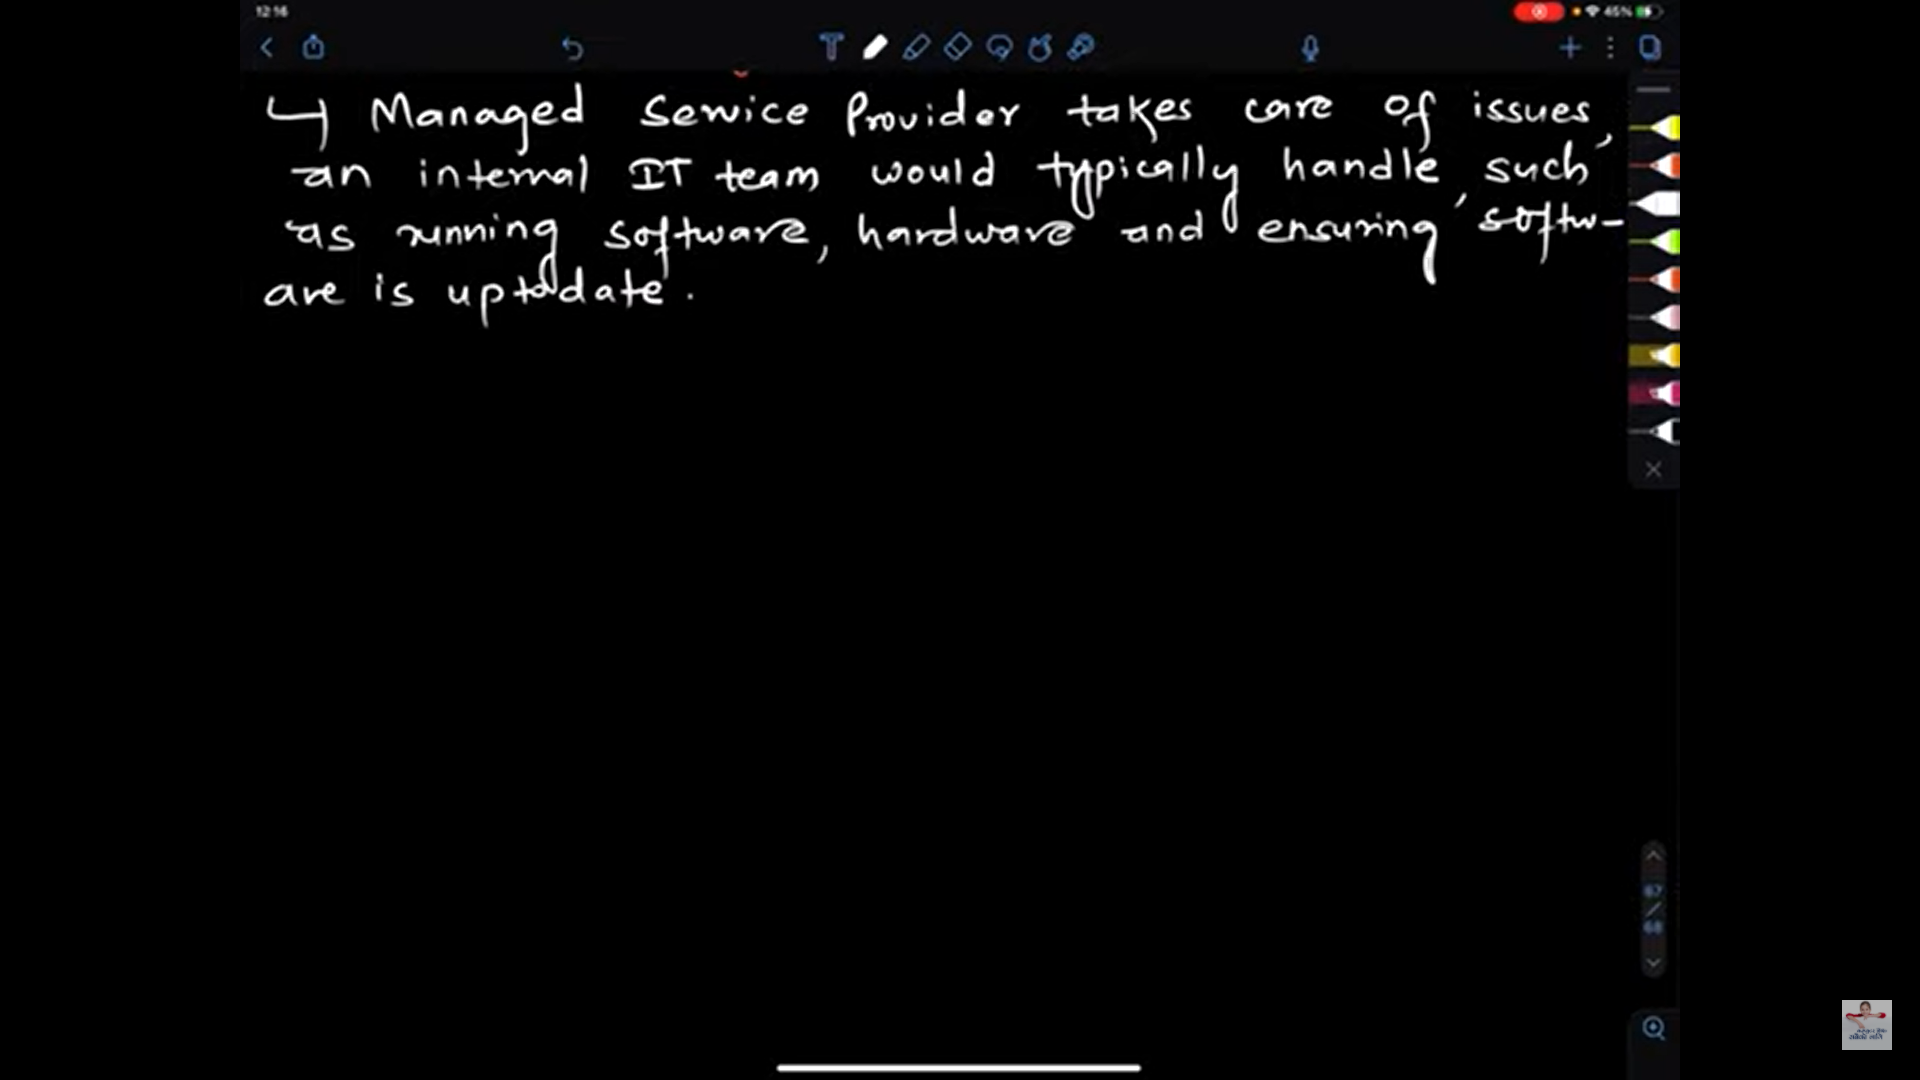 12:16
45%
↳ Managed Service Provider takes care of issues,
an internal IT team would typically handle, such
as running software, hardware and ensuring softw-
are is uptodate.
67
/
68